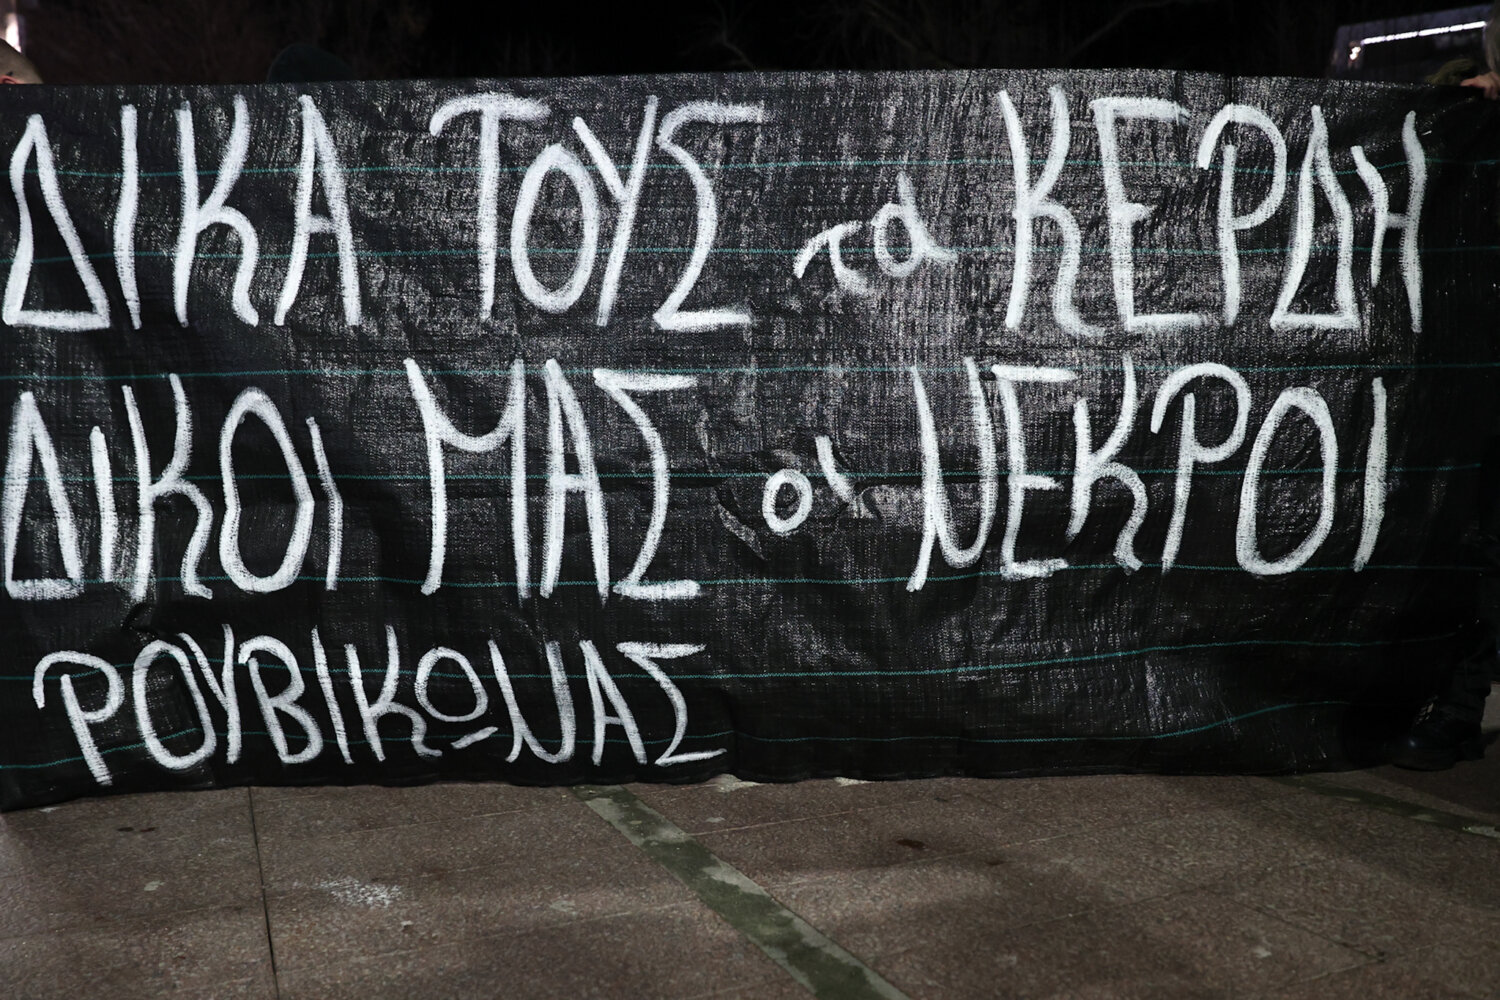 ΔΙΚΑ ΤΟΥΣ τα ΚΕΡΔΗ
ΔΙΚΟΙ ΜΑΣ οι ΝΕΚΡΟΙ
ΡΟΥΒΙΚΩΝΑΣ